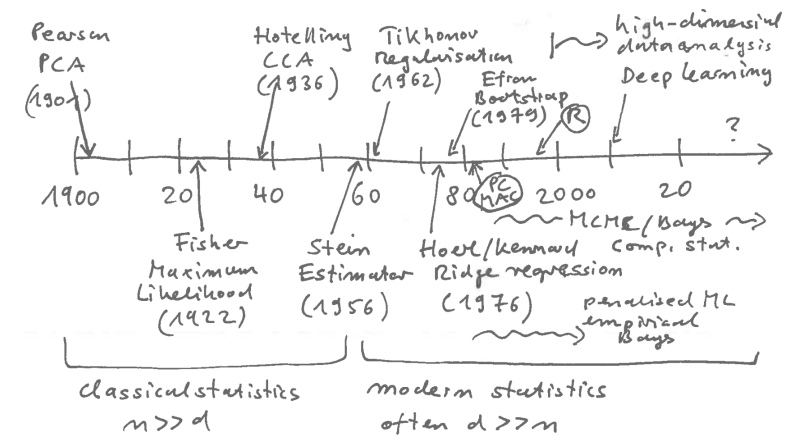 Pearson
PCA
(1901)
Hotelling
CCA
(1936)
Tikhonov
Regularisation
(1962)
Efron
Bootstrap
(1979)
R
high-dimensional
data analysis
Deep Learning
?
1900
20
40
60
80
PC
MAC
2000
20
Fisher
Maximum
Likelihood
(1922)
Stein
Estimator
(1956)
Hoerl/Kennard
Ridge regression
(1976)
MCMC/Bays
Comp. stat.
penalised ML
empirical
Bays
classical statistics
n>>d
modern statistics
often d>>n